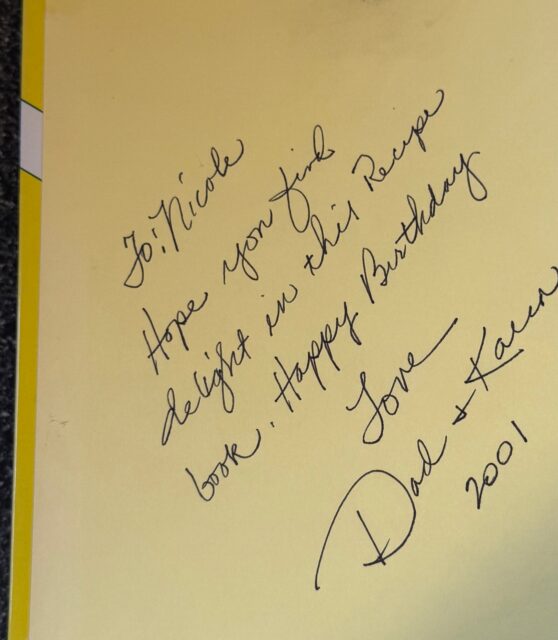 To: Nicole
Hope you find
delight in this Recipe
book. Happy Birthday
Love
Dad + Karen
2001